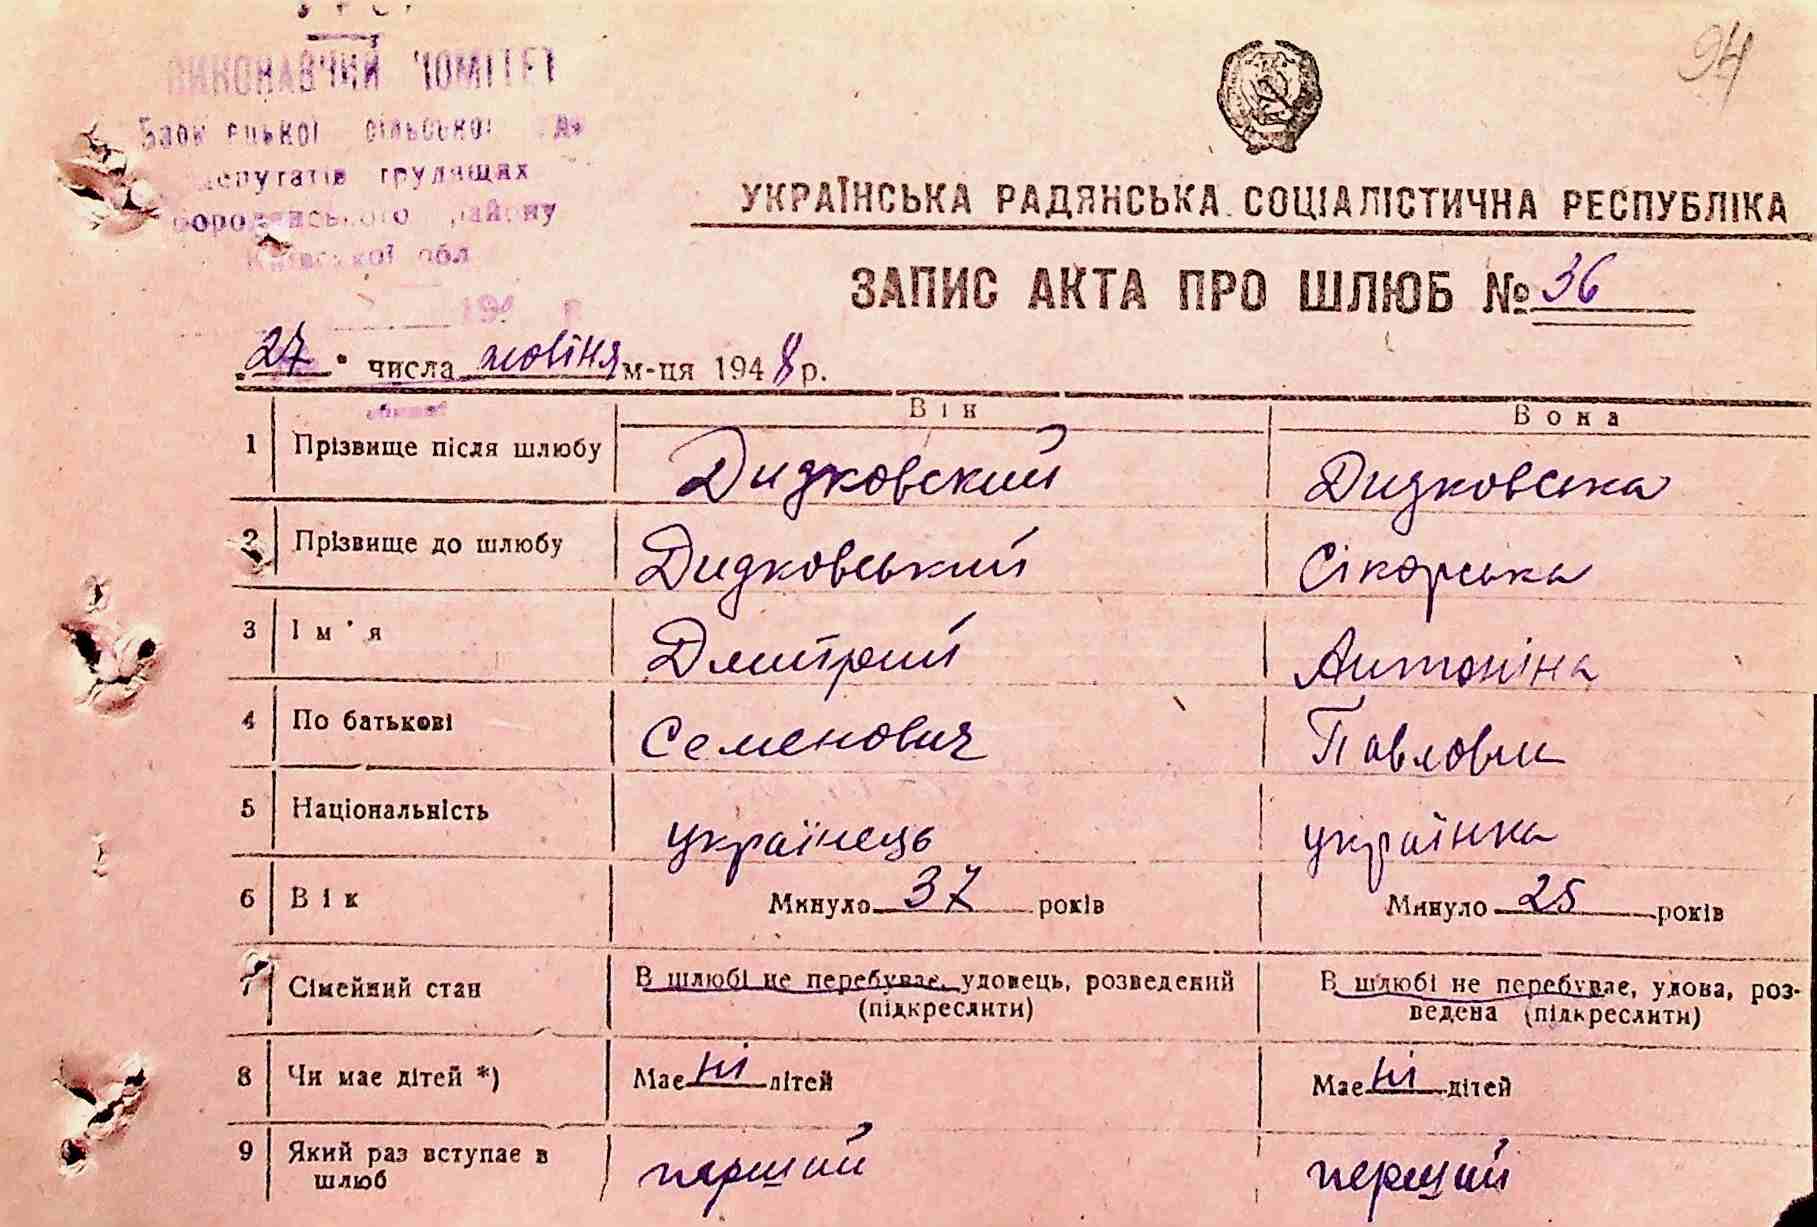 94
ВИКОНАВЧИЙ КОМІТЕТ
сільської
депутатів трудящих
Бородянського району
Київської обл
194 р
УКРАЇНСЬКА РАДЯНСЬКА СОЦІАЛІСТИЧНА РЕСПУБЛІКА
ЗАПИС АКТА ПРО ШЛЮБ № 36
"27" числа жовтня м-ця 1948 р.
Він Вона
1 Прізвище після шлюбу Дидковский Дидковська
2 Прізвище до шлюбу Дидковський Сікорська
3 Ім'я Дмитрий Антоніна
4 По батькові Семенович Павловн
5 Національність українець українка
6 Вік Минуло 37 років Минуло 25 років
7 Сімейний стан В шлюбі не перебуває, удовець, розведений В шлюбі не перебуває, удова, роз-
(підкреслити) ведена (підкреслити)
8 Чи має дітей *) Має ні дітей Має ні дітей
9 Який раз вступає в перший перший
шлюб